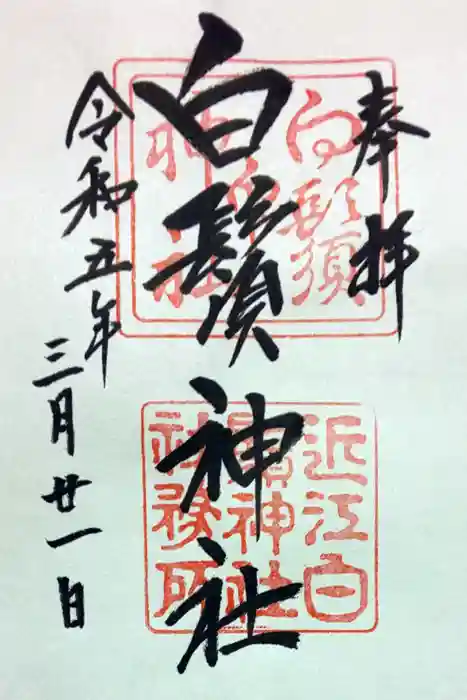 奉拝
白鬚神社
令和五年
三月廿一日
白鬚神社
近江白
鬚神社
社務所